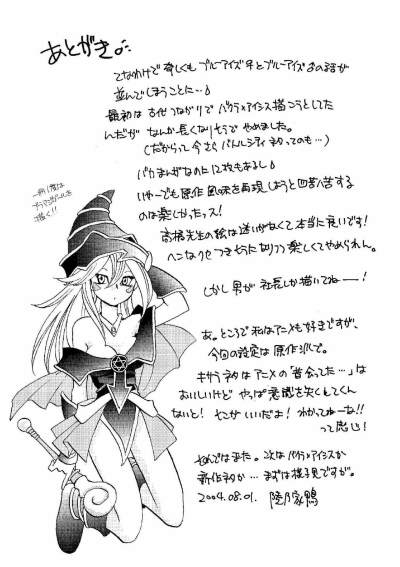 あとがき
てなわけで奇しくもブルーアイズ♀とブルーアイズ♂の話が
並んでしまうことに…♪
最初は古代つながりでバクラ×アイシス描こうとしてた
んだがなんか長くなりそうでやめました。
(だからって今さらバトルシティ初っても…)
バカまんがなのに12枚もあるし♪
いやーでも原作風味を再現しようと四苦八苦する
のは楽しかったっス!
高橋先生の絵は迷いがなくて本当に良いです!
ヘンなクセつきそうになりつつ楽しくてやめられん。
しかし男が社長しか描いてねー!
一冊1度は
ブラマジガールを
描く!!
あ。ところで私はアニメも好きですが、
今回の設定は原作ジルで。
キサラネタはアニメの「昔会ってた…」は
おいしいけどやっぱ意識を失くしてくん
ないと!そこがいいだよ!わかってねーな!!
って感じ!
それではまた。次はバクラ×アイシスか
新作初か…まずは様子見ですが。
2004.08.01.